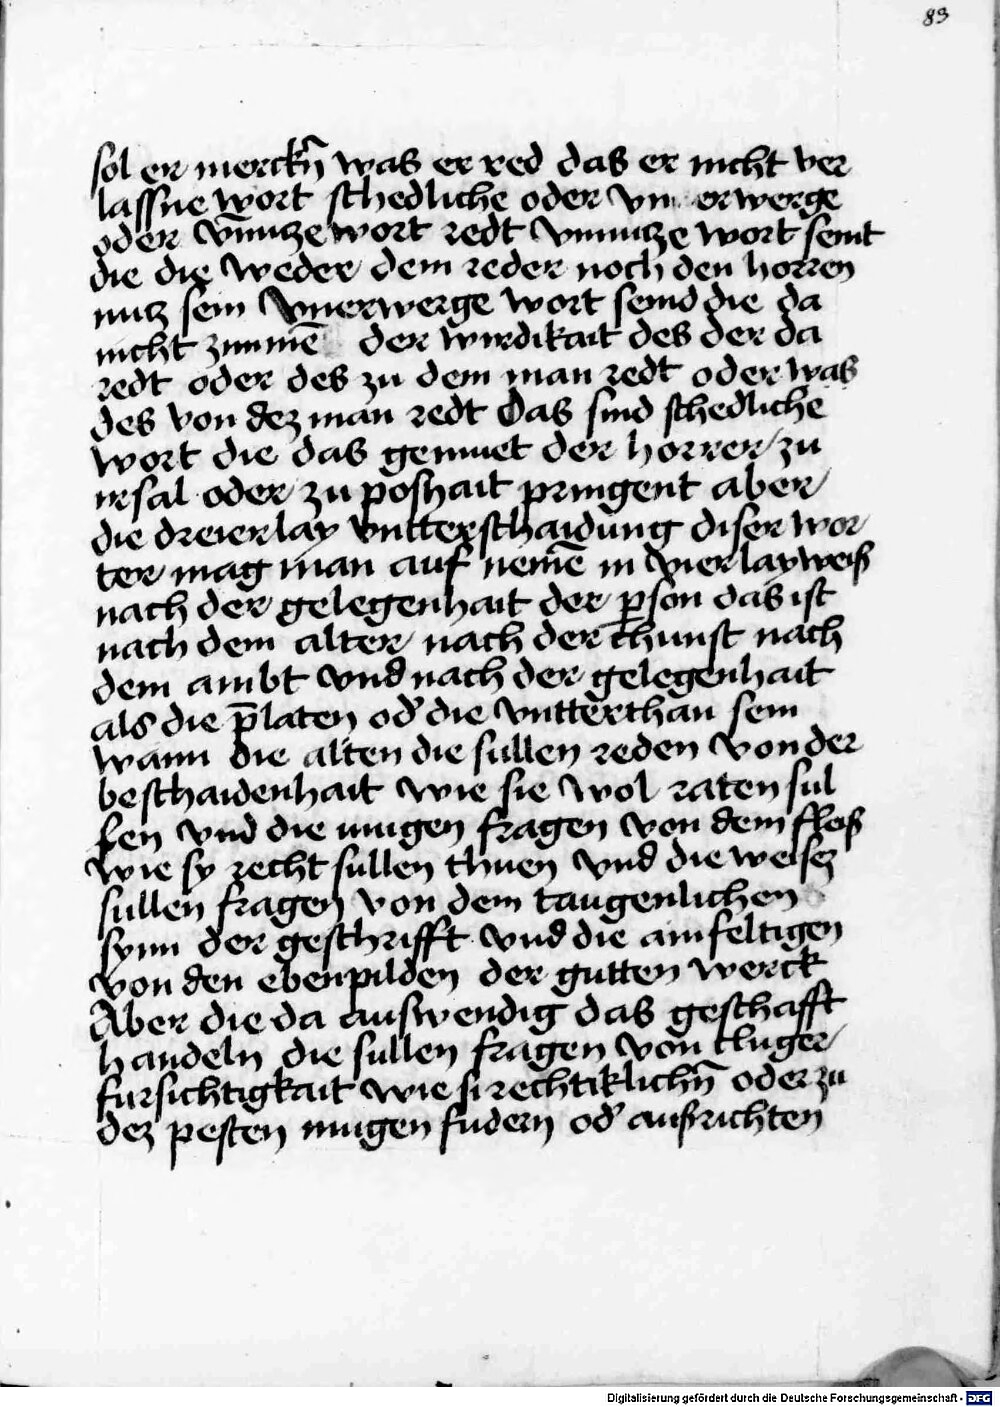 83
sol er merckn̄ was er red das er nicht ver
lassne wort schedliche oder vn erwerge
oder vn̄nutze wort redt vnnutze wort seint
die die weder dem reder noch den horren
nutz sein vnerwerge wort seind die da
nicht zimmē der wirdikait des der da
redt oder des zu dem man redt oder was
des von dez man redt Das sind schedliche
wort die das gemuet der horrer zu
irsal oder zu poshait pringent aber
die dreierlay vntterschaidung diser wor
ter mag man auf nemē in vier lay weiß
nach der gelegenhait der p̱son das ist
nach dem alter nach der chunst nach
dem ambt vnd nach der gelegenhait
als die p̄laten od' die vntterthan sein
wann die alten die sullen reden von der
beschaidenhait wie sie wol raten sul
len vnd die iungen fragen von dem fleiß
wie sy recht sullen thuen vnd die weisez
sullen fragen von dem taugenlichen
synn der geschrifft vnd die ainfeltigen
von den ebenpilden der gutten werck
Aber die da auswendig das geschafft
handeln die sullen fragen von cluger
fursichtigkait wie si rechtiklichn̄ oder zu
dez pesten mugen fudern od' außrichten
Digitalisierung gefördert durch die Deutsche Forschungsgemeinschaft - DFG